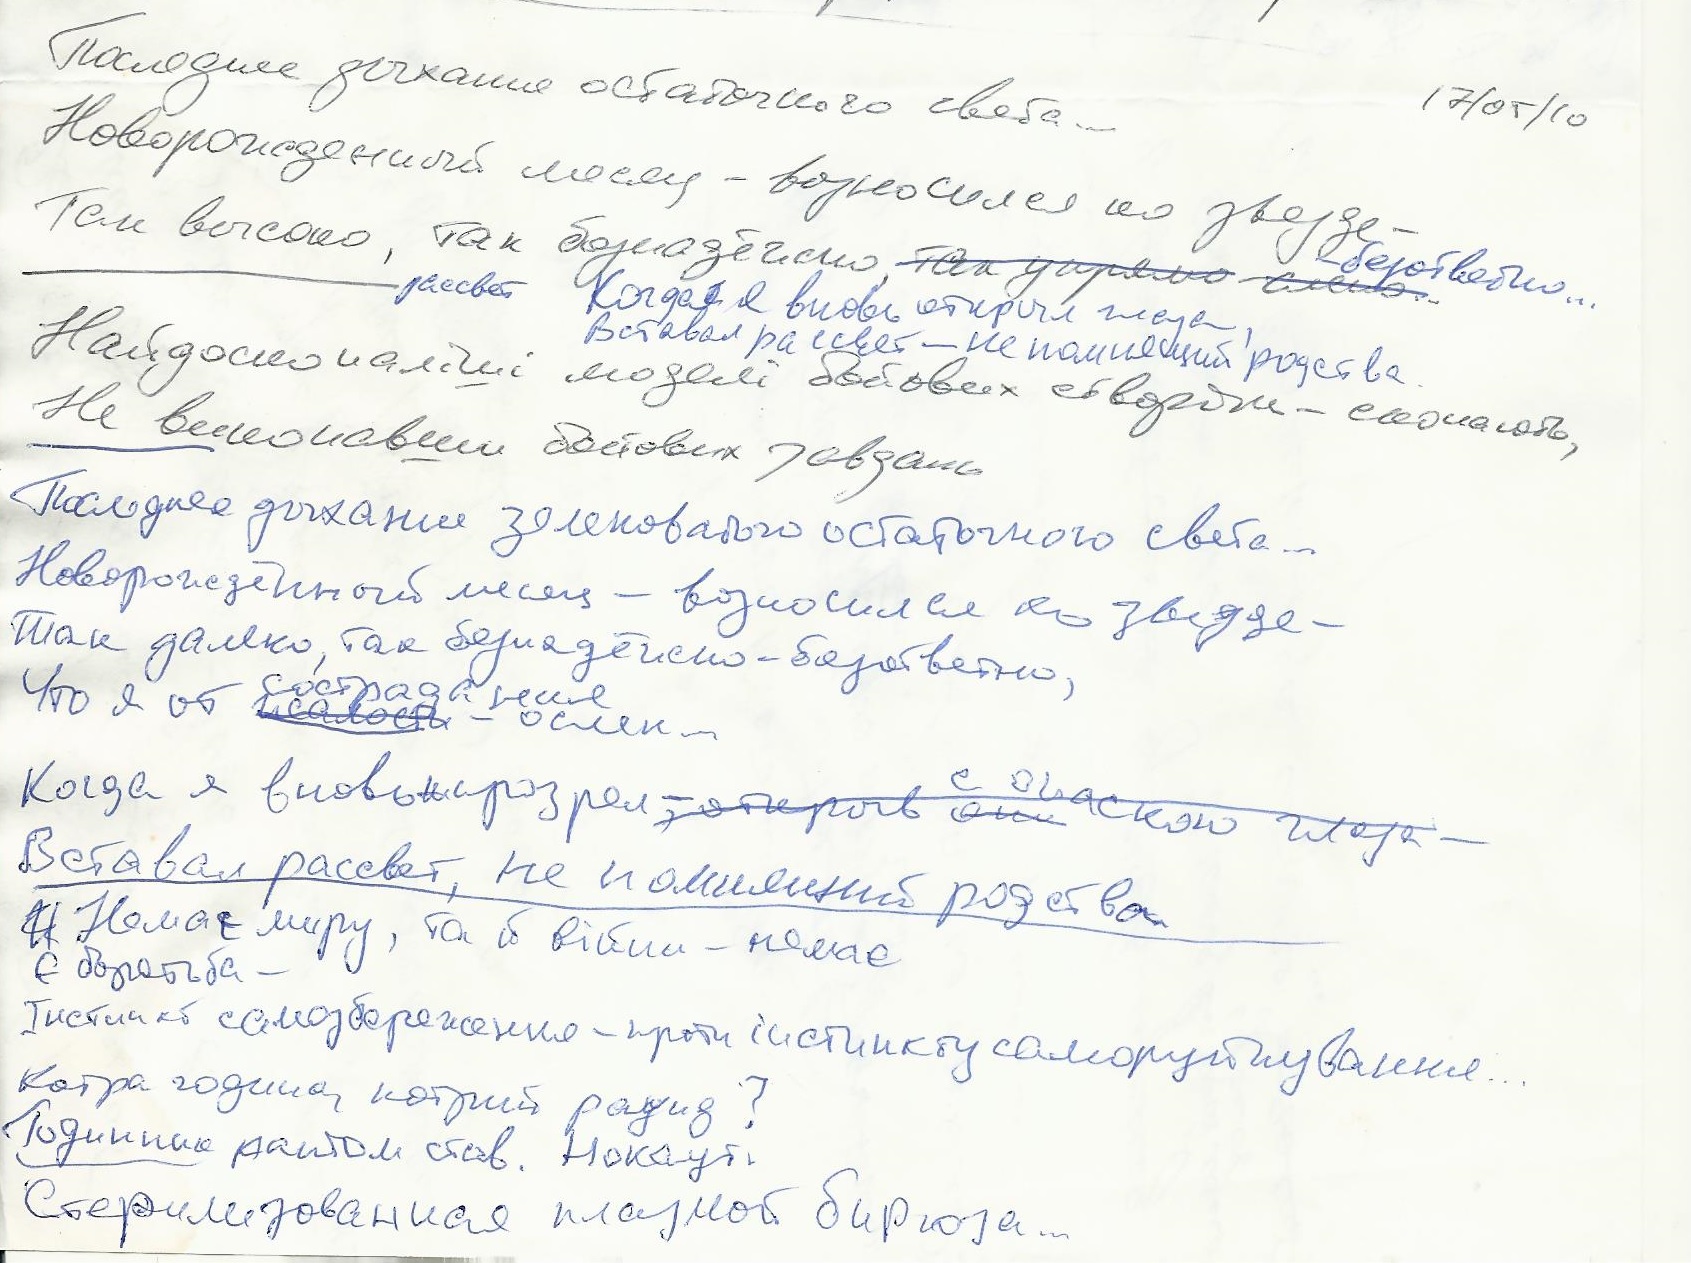 Последнее дыхание остаточного света...
17/05/10
Новорожденный месяц – возносился ко звезде –
Так высоко, так безнадёжно, так упрямо слепо... – безответно...
рассвет Когда я вновь открыл глаза,
Вставал рассвет – не помнящий родства.
Найдосконаліші моделі бойових створінь – сконають,
Не виконавши бойових завдань
Последнее дыхание зеленоватого остаточного света...
Новорождённый месяц – возносился ко звезде –
Так далеко, так безнадёжно-безответно,
Что я от жалости сострадания – ослеп...
Когда я вновь прозрел, открыв они с опаскою глаза –
Вставал рассвет, не помнящий родства
Немає миру, та й війни – немає
Є боротьба –
Інстинкт самозбереження – проти інстинкту саморуйнування...
Котра година, котрий раунд?
Годинник став. Нокаут.
Стерилизованная плазмой бирюза...